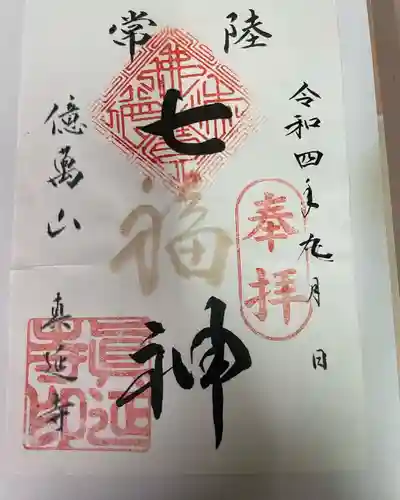 常陸
令和四年九月 日
奉拝
七福神
億萬山 真延寺